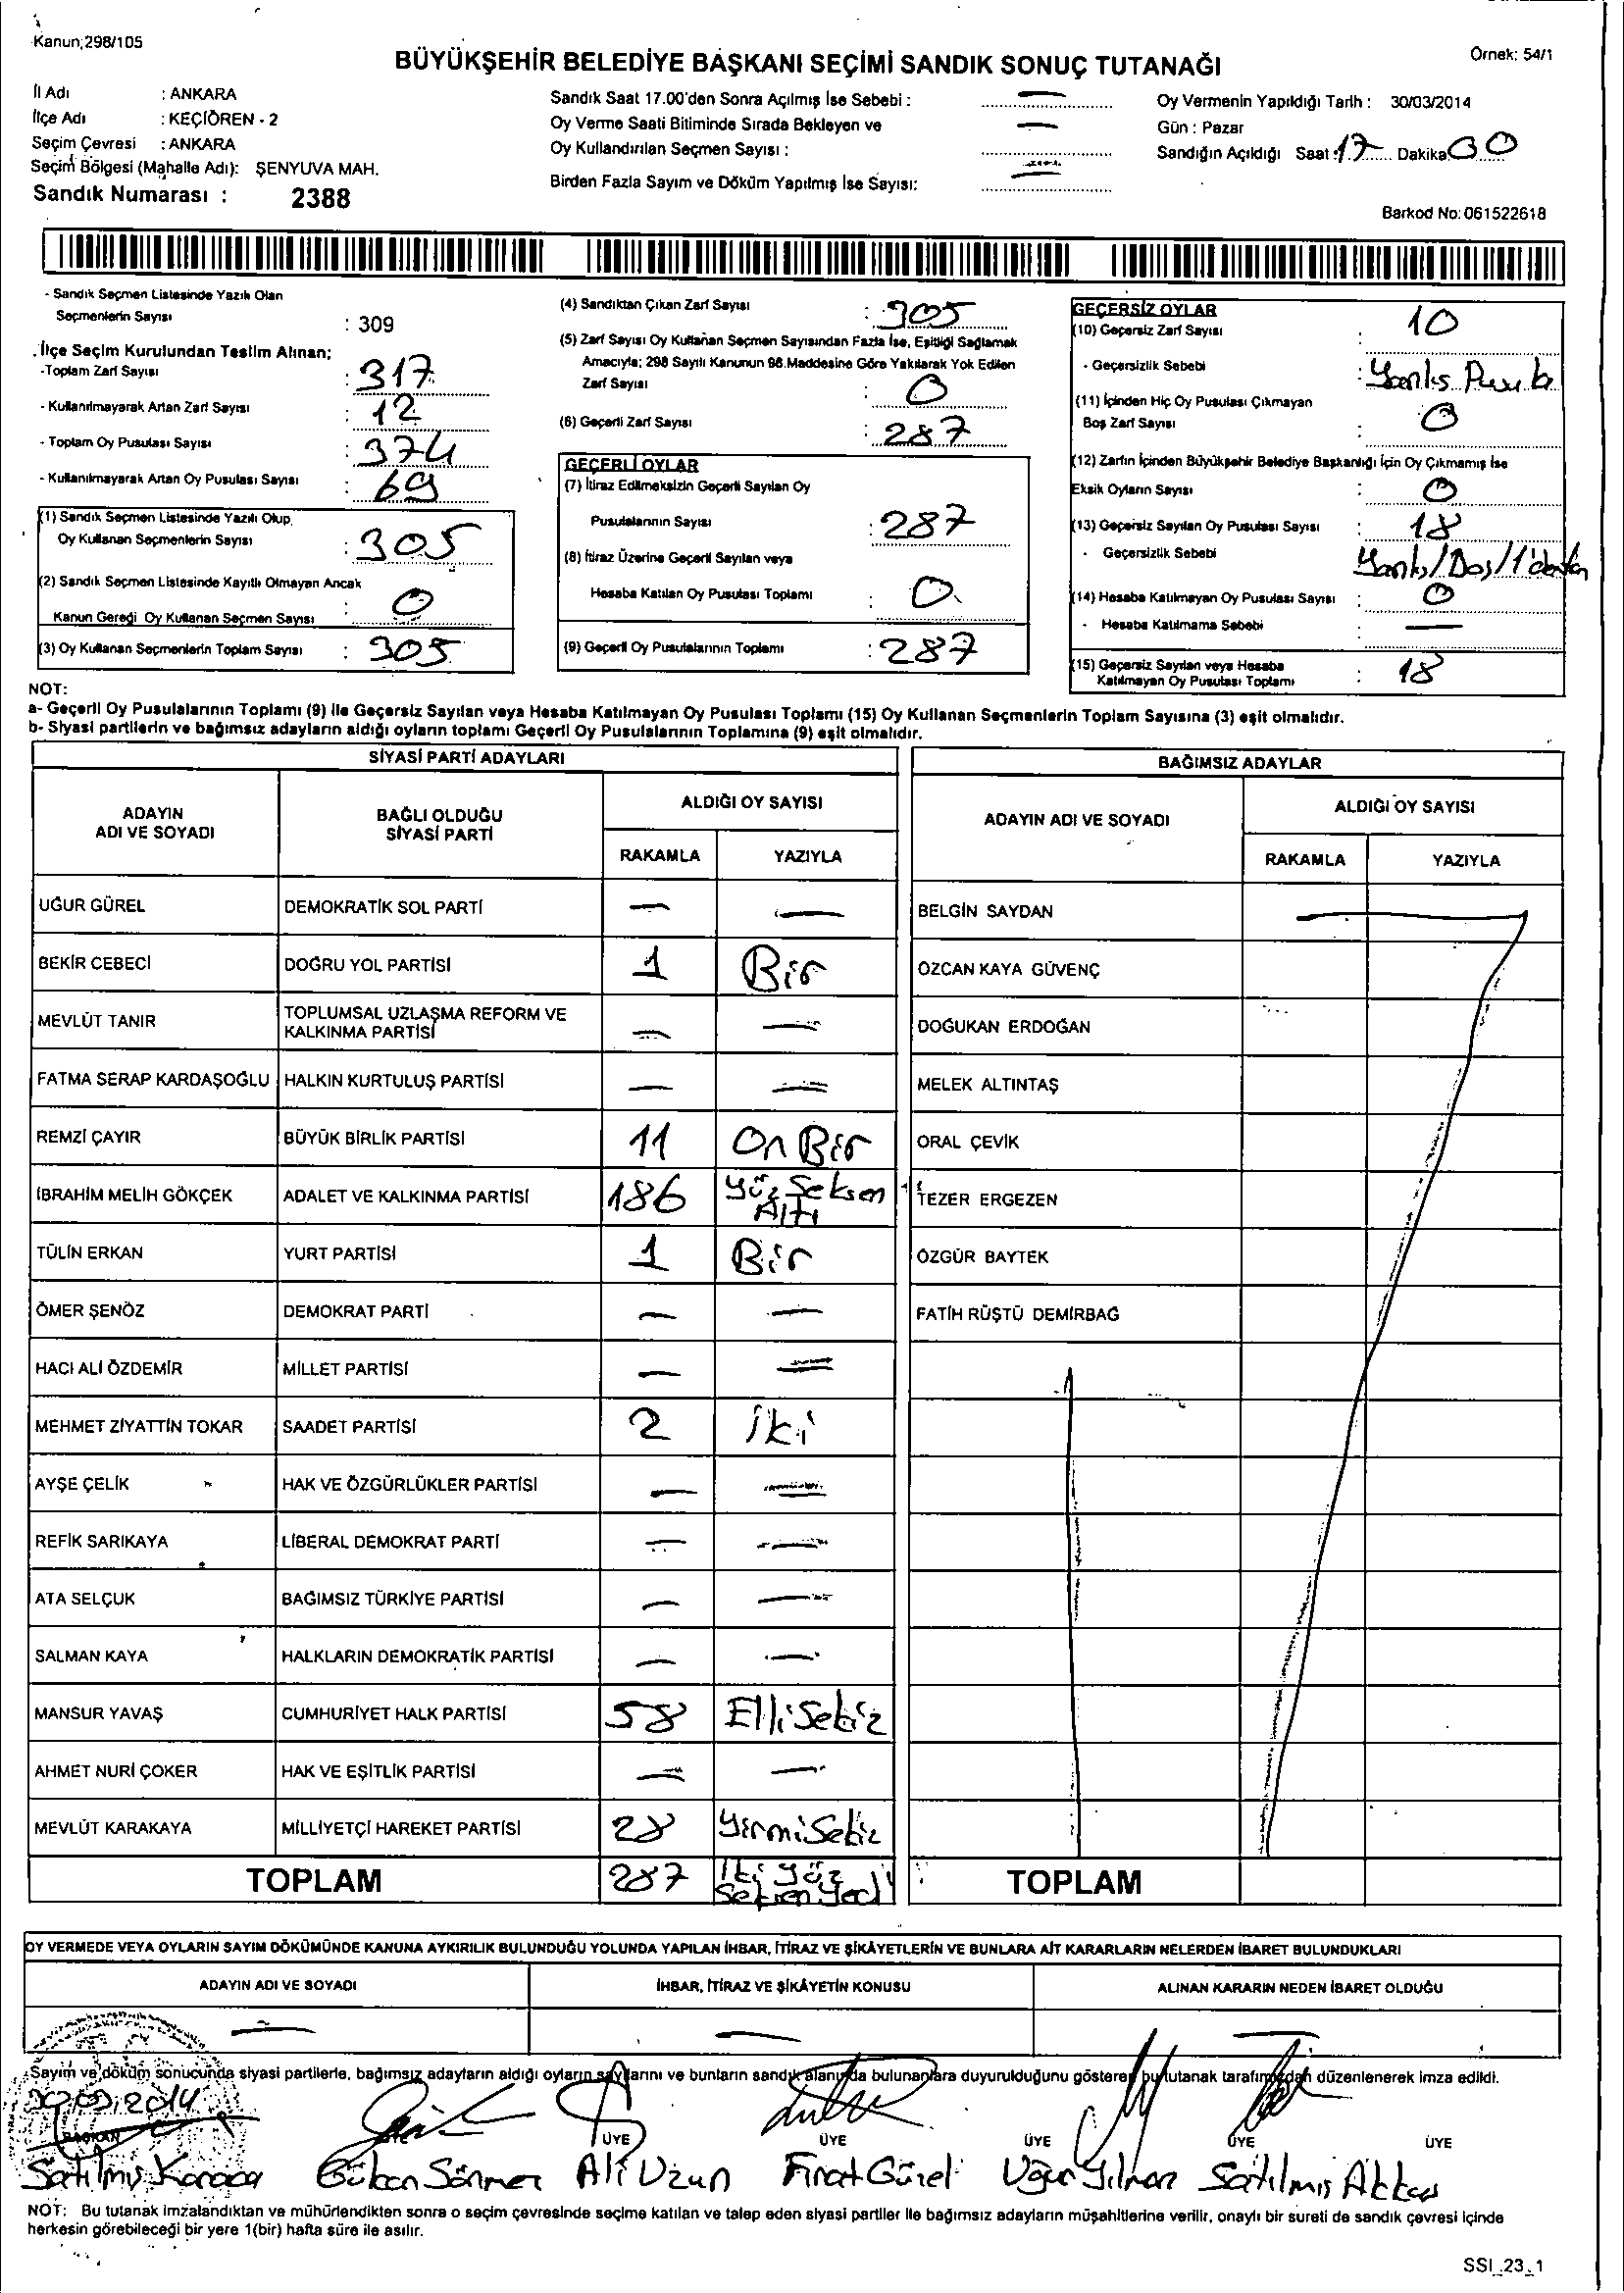 Kanun;298/105
Örnek: 54/1
BÜYÜKŞEHİR BELEDİYE BAŞKANI SEÇİMİ SANDIK SONUÇ TUTANAĞI
İl Adı : ANKARA
İlçe Adı : KEÇİÖREN - 2
Seçim Çevresi : ANKARA
Seçim Bölgesi (Mahalle Adı): ŞENYUVA MAH.
Sandık Numarası : 2388
Sandık Saat 17.00'den Sonra Açılmış İse Sebebi : —
Oy Verme Saati Bitiminde Sırada Bekleyen ve
Oy Kullandırılan Seçmen Sayısı : —
Birden Fazla Sayım ve Döküm Yapılmış İse Sayısı: —
Oy Vermenin Yapıldığı Tarih : 30/03/2014
Gün : Pazar
Sandığın Açıldığı Saat : 17 Dakika 30
Barkod No: 061522618
- Sandık Seçmen Listesinde Yazılı Olan
Seçmenlerin Sayısı : 309
İlçe Seçim Kurulundan Teslim Alınan;
-Toplam Zarf Sayısı : 317
- Kullanılmayarak Artan Zarf Sayısı : 12
- Toplam Oy Pusulası Sayısı : 374
- Kullanılmayarak Artan Oy Pusulası Sayısı : 69
(1) Sandık Seçmen Listesinde Yazılı Olup,
Oy Kullanan Seçmenlerin Sayısı : 305
(2) Sandık Seçmen Listesinde Kayıtlı Olmayan Ancak
Kanun Gereği Oy Kullanan Seçmen Sayısı : 0
(3) Oy Kullanan Seçmenlerin Toplam Sayısı : 305
(4) Sandıktan Çıkan Zarf Sayısı : 305
(5) Zarf Sayısı Oy Kullanan Seçmen Sayısından Fazla İse, Eşitliği Sağlamak
Amacıyla; 298 Sayılı Kanunun 98.Maddesine Göre Yakılarak Yok Edilen
Zarf Sayısı : 0
(6) Geçerli Zarf Sayısı : 287
GEÇERLİ OYLAR
(7) İtiraz Edilmeksizin Geçerli Sayılan Oy
Pusulalarının Sayısı : 287
(8) İtiraz Üzerine Geçerli Sayılan veya
Hesaba Katılan Oy Pusulası Toplamı : 0
(9) Geçerli Oy Pusulalarının Toplamı : 287
GEÇERSİZ OYLAR
(10) Geçersiz Zarf Sayısı : 10
- Geçersizlik Sebebi : Yanlış
(11) İçinden Hiç Oy Pusulası Çıkmayan
Boş Zarf Sayısı : 0
(12) Zarfın İçinden Büyükşehir Belediye Başkanlığı İçin Oy Çıkmamış İse
Eksik Oyların Sayısı : 0
(13) Geçersiz Sayılan Oy Pusulası Sayısı : 18
- Geçersizlik Sebebi Yanlış/Boş/1'den
(14) Hesaba Katılmayan Oy Pusulası Sayısı : 0
- Hesaba Katılmama Sebebi —
(15) Geçersiz Sayılan veya Hesaba
Katılmayan Oy Pusulası Toplamı : 18
NOT:
a- Geçerli Oy Pusulalarının Toplamı (9) ile Geçersiz Sayılan veya Hesaba Katılmayan Oy Pusulası Toplamı (15) Oy Kullanan Seçmenlerin Toplam Sayısına (3) eşit olmalıdır.
b- Siyasi partilerin ve bağımsız adayların aldığı oyların toplamı Geçerli Oy Pusulalarının Toplamına (9) eşit olmalıdır.
SİYASİ PARTİ ADAYLARI
ADAYIN ADI VE SOYADI
BAĞLI OLDUĞU SİYASİ PARTİ
ALDIĞI OY SAYISI
RAKAMLA YAZIYLA
UĞUR GÜREL DEMOKRATİK SOL PARTİ — —
BEKİR CEBECİ DOĞRU YOL PARTİSİ 1 Bir
MEVLÜT TANIR TOPLUMSAL UZLAŞMA REFORM VE KALKINMA PARTİSİ — —
FATMA SERAP KARDAŞOĞLU HALKIN KURTULUŞ PARTİSİ — —
REMZİ ÇAYIR BÜYÜK BİRLİK PARTİSİ 11 On Bir
İBRAHİM MELİH GÖKÇEK ADALET VE KALKINMA PARTİSİ 186 Yüz Seksen Altı
TÜLİN ERKAN YURT PARTİSİ 1 Bir
ÖMER ŞENÖZ DEMOKRAT PARTİ — —
HACI ALİ ÖZDEMİR MİLLET PARTİSİ — —
MEHMET ZİYATTİN TOKAR SAADET PARTİSİ 2 İki
AYŞE ÇELİK HAK VE ÖZGÜRLÜKLER PARTİSİ — —
REFİK SARIKAYA LİBERAL DEMOKRAT PARTİ — —
ATA SELÇUK BAĞIMSIZ TÜRKİYE PARTİSİ — —
SALMAN KAYA HALKLARIN DEMOKRATİK PARTİSİ — —
MANSUR YAVAŞ CUMHURİYET HALK PARTİSİ 58 Elli Sekiz
AHMET NURİ ÇOKER HAK VE EŞİTLİK PARTİSİ — —
MEVLÜT KARAKAYA MİLLİYETÇİ HAREKET PARTİSİ 28 Yirmi Sekiz
TOPLAM 287 İki Yüz Seksen Yedi
BAĞIMSIZ ADAYLAR
ADAYIN ADI VE SOYADI
ALDIĞI OY SAYISI
RAKAMLA YAZIYLA
BELGİN SAYDAN
ÖZCAN KAYA GÜVENÇ
DOĞUKAN ERDOĞAN
MELEK ALTINTAŞ
ORAL ÇEVİK
TEZER ERGEZEN
ÖZGÜR BAYTEK
FATİH RÜŞTÜ DEMİRBAĞ
TOPLAM
OY VERMEDE VEYA OYLARIN SAYIM DÖKÜMÜNDE KANUNA AYKIRILIK BULUNDUĞU YOLUNDA YAPILAN İHBAR, İTİRAZ VE ŞİKÂYETLERİN VE BUNLARA AİT KARARLARIN NELERDEN İBARET BULUNDUKLARI
ADAYIN ADI VE SOYADI İHBAR, İTİRAZ VE ŞİKÂYETİN KONUSU ALINAN KARARIN NEDEN İBARET OLDUĞU
— — —
Sayım ve döküm sonucunda siyasi partilerle, bağımsız adayların aldığı oyların sayılarını ve bunların sandık alanında bulunanlara duyurulduğunu gösteren bu tutanak tarafımızdan düzenlenerek imza edildi.
30.03.2014
BAŞKAN ÜYE ÜYE ÜYE ÜYE ÜYE ÜYE
Satılmış Karaca Gülcan Sönmez Ali Uzun Fırat Gürel Uğur Yılmaz Satılmış Akkaş
NOT: Bu tutanak imzalandıktan ve mühürlendikten sonra o seçim çevresinde seçime katılan ve talep eden siyasi partiler ile bağımsız adayların müşahitlerine verilir, onaylı bir sureti de sandık çevresi içinde
herkesin görebileceği bir yere 1(bir) hafta süre ile asılır.
SSI_23_1